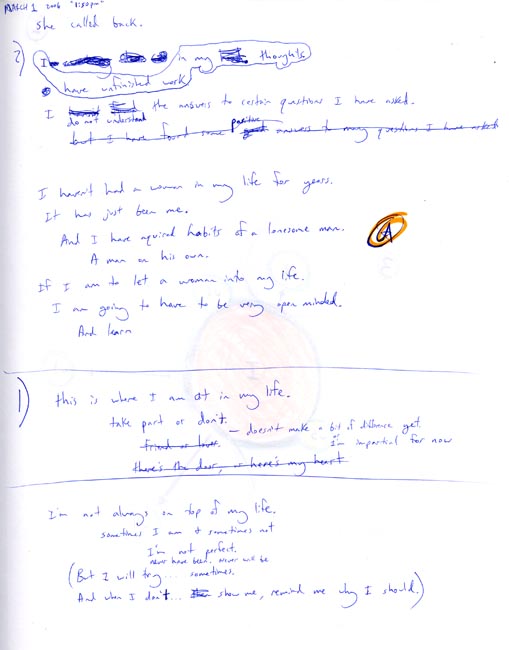 MARCH 1 2006 "1:30pm"
she called back.
2) I in my thoughts
have unfinished work
I the answers to certain questions I have asked.
do not understand
positive
but I have found some good answers to many questions I have asked
I haven't had a woman in my life for years.
It has just been me.
And I have aquired habits of a lonesome man.
A
A man on his own.
If I am to let a woman into my life.
I am going to have to be very open minded.
And learn
1) this is where I am at in my life.
take part or don't. — doesn't make a bit of difference yet.
friend or lover. I'm impartial for now
there's the door, or here's my heart
I'm not always on top of my life.
sometimes I am & sometimes not
I'm not perfect.
never have been. never will be
(But I will try... sometimes.
And when I don't... show me, remind me why I should.)